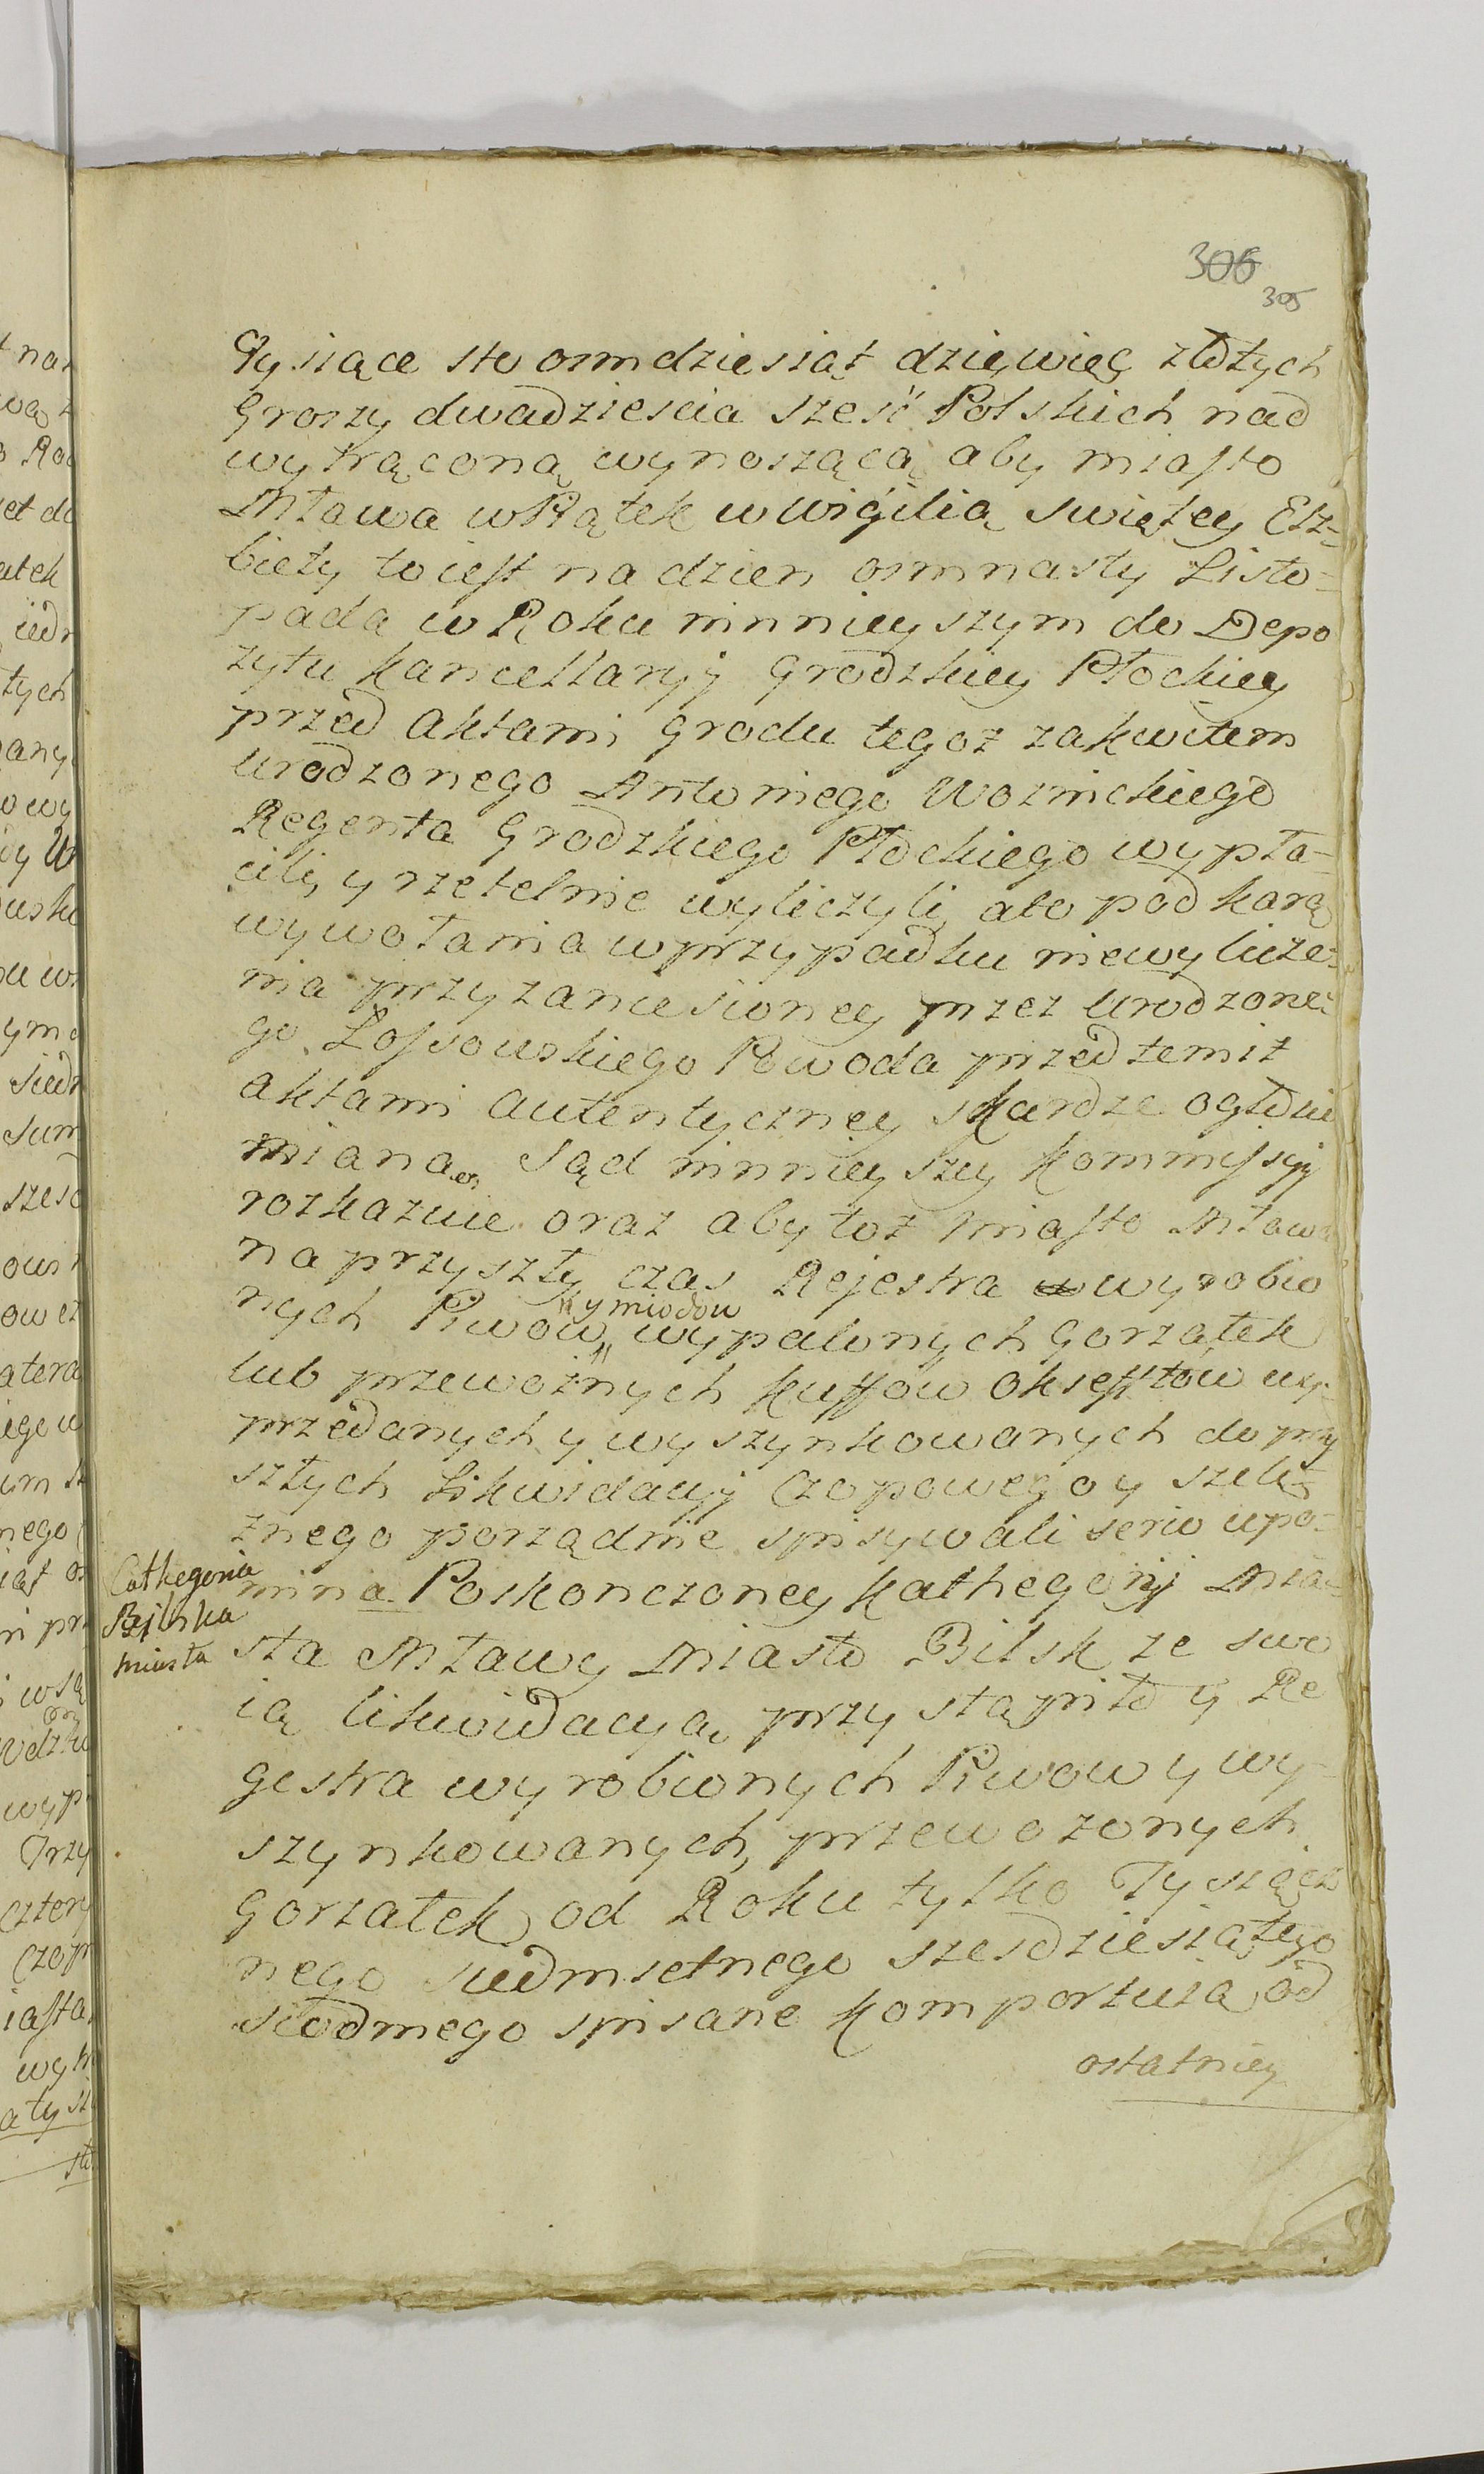 306
305
Tysiące sto osmdziesiąt dziewięć złotych
Groszy dwadziescia sześć Polskich nad
wytrąconą wynoszącą aby miasto
Mława w Piątek w wigilią swiętey Elż=
biety to iest na dzien osmnasty Listo=
pada w Roku ninnieyszym do Depo
zytu kancellaryi Grodzkiey Płockiey
przed Aktami Grodu tegoż zakwitem
urodzonego Antoniego Woznickiego
Regenta Grodzkiego Płockiego wypła=
cili y rzetelnie wyliczyli, a to pod karą
wywołania w przypadku niewylicze=
nia przyzaniesioney przez urodzone=
go Lossowskiego Powoda przed temiż
aktami autentyczney skardze ogłosie
miana Sąd ninnieyszy kommissyi
rozkazuie oraz aby toż miasto Mława
na przyszły czas Rejestra wyrobio
nych Piwow " y miodow " wypalonych Gorzałek
lub przewoznych kuffow oksefftow wy=
przedanych y wyszynkowanych do przy
szłych Likwidacyi Czopowego y szelę=
żnego porządnie spisywali serio upo=
mina. Poskonczoney kathegoryi Mia=
sta Mławy Miasto Bilsk ze swo
ią likwidacyą przystąpiło y Re
gestra wyrobionych Piwow y wy=
szynkowanych, przewozonych
Gorzałek od Roku tylko Tysiącz
nego siedmsetnego szesdziesiątego
siodmego spisane komportuią od
ostatniey
Cathegoria
Bilska
miasta